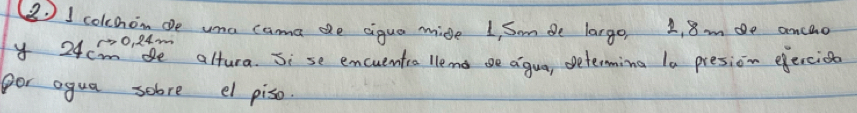 2.) 1 colchón de una cama de agua mide 1,5m de largo, 2,8m de ancho
→0,24m
y 24cm de altura. Si se encuentra lleno de agua, determina la presión ejercida
por agua sobre el piso.